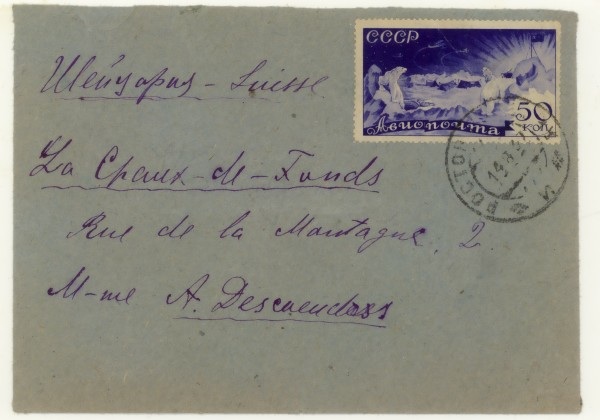 СССР
50 коп.
Авиопочта
РОСТОВ
Швейцария - Suisse
La Chaux-de-Fonds
Rue de la Montagne, 2.
M-me A.